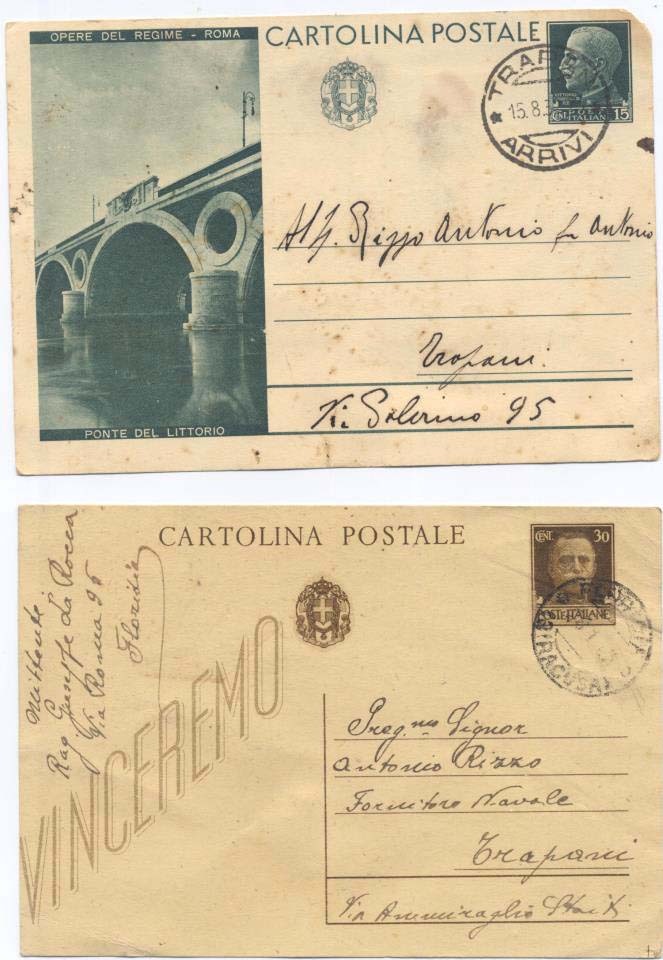 OPERE DEL REGIME - ROMA
CARTOLINA POSTALE
TRAPANI
15.8.3
ARRIVI
POSTE
ITALIANE
CENT. 15
Rizzo Antonio fu Antonio
Trapani.
Via Salerino 95
PONTE DEL LITTORIO
CARTOLINA POSTALE
CENT. 30
POSTE ITALIANE
SIRACUSA
Mittente
Rag. Giuseppe La Rocca
Via Roma 95
Floridia
VINCEREMO
Preg.mo Signor
Antonio Rizzo
Fornitore Navale
Trapani
Via Ammiraglio Staiti